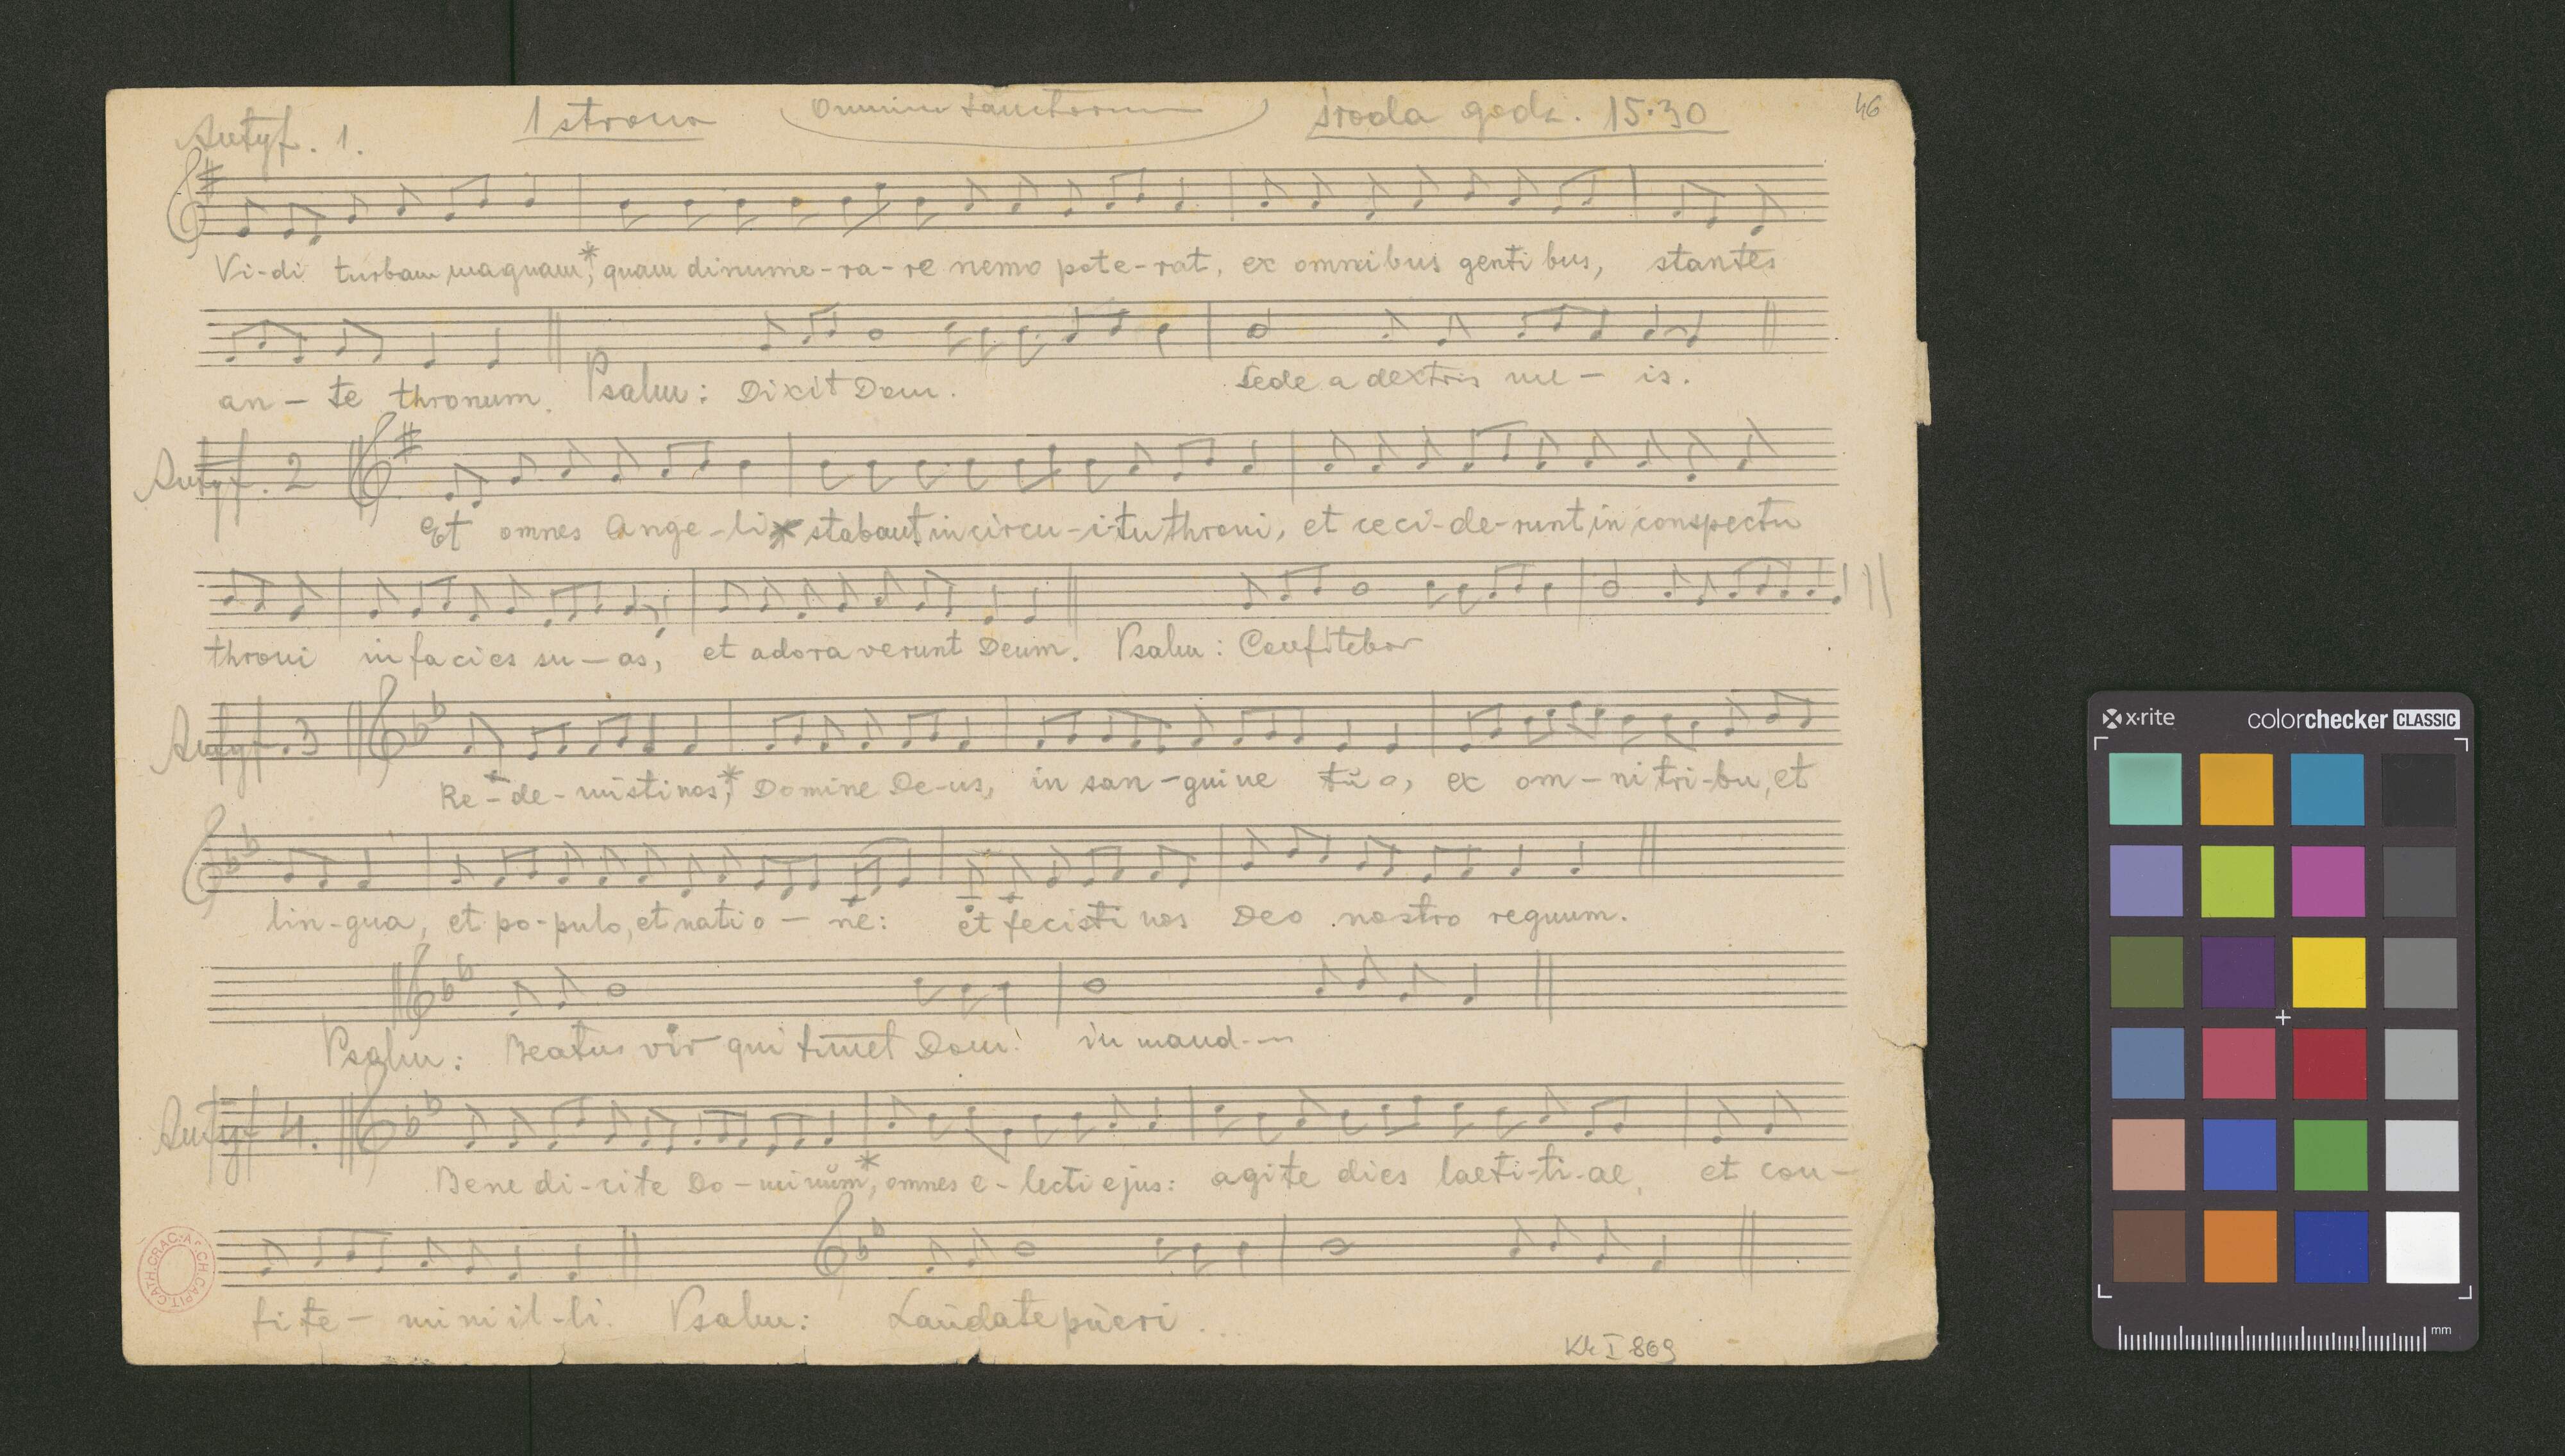 Antyf. 1. 1 strona Omnium Sanctorum środa godz. 15.30 46
Vi-di turbam magnam,* quam dinume-ra-re nemo pote-rat, ex omnibus gentibus, stantes
an-te thronum. Psalm: Dixit Dom. Sede a dextris me-is.
Antyf. 2
Et omnes Ange-li * stabant in circu-itu throni, et ceci-de-runt in conspectu
throni in facies su-as, et adoraverunt Deum. Psalm: Confitebor
Antyf. 3
Re-de-misti nos,* Domine De-us, in san-guine tuo, ex om-ni tri-bu, et
lin-gua, et po-pulo, et natio-ne: et fecisti nos Deo nostro regnum.
Psalm: Beatus vir qui timet Dom. in mand---
Antyf 4.
Bene di-cite Do-minum,* omnes e-lecti ejus: agite dies laeti-ti-ae, et con-
fite-mini il-li. Psalm: Laudate pueri...
Kk I 869
CATH.CRAC.
ARCH.CAPIT.
x-rite colorchecker CLASSIC
mm